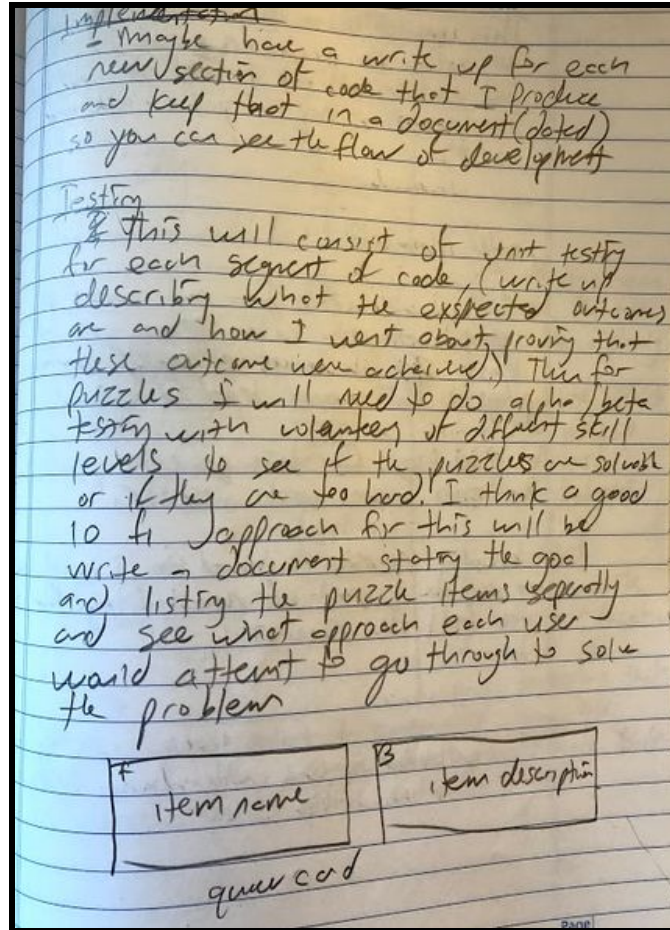 Implementation
- Maybe have a write up for each
new section of code that I produce
and keep that in a document (dated)
so you can see the flow of development
Testing
This will consist of unit testing
for each segment of code, (write up
describing what the exspected outcomes
are and how I went about proving that
these outcome were achieved.) Then for
puzzles I will need to do alpha/beta
testing with volunteers of different skill
levels to see if the puzzles are solvable
or if they are too hard. I think a good
approach for this will be
write a document stating the goal
and listing the puzzle items seperatly
and see what approach each user
would attemt to go through to solve
the problem
F
item name
B
item description
card
Page